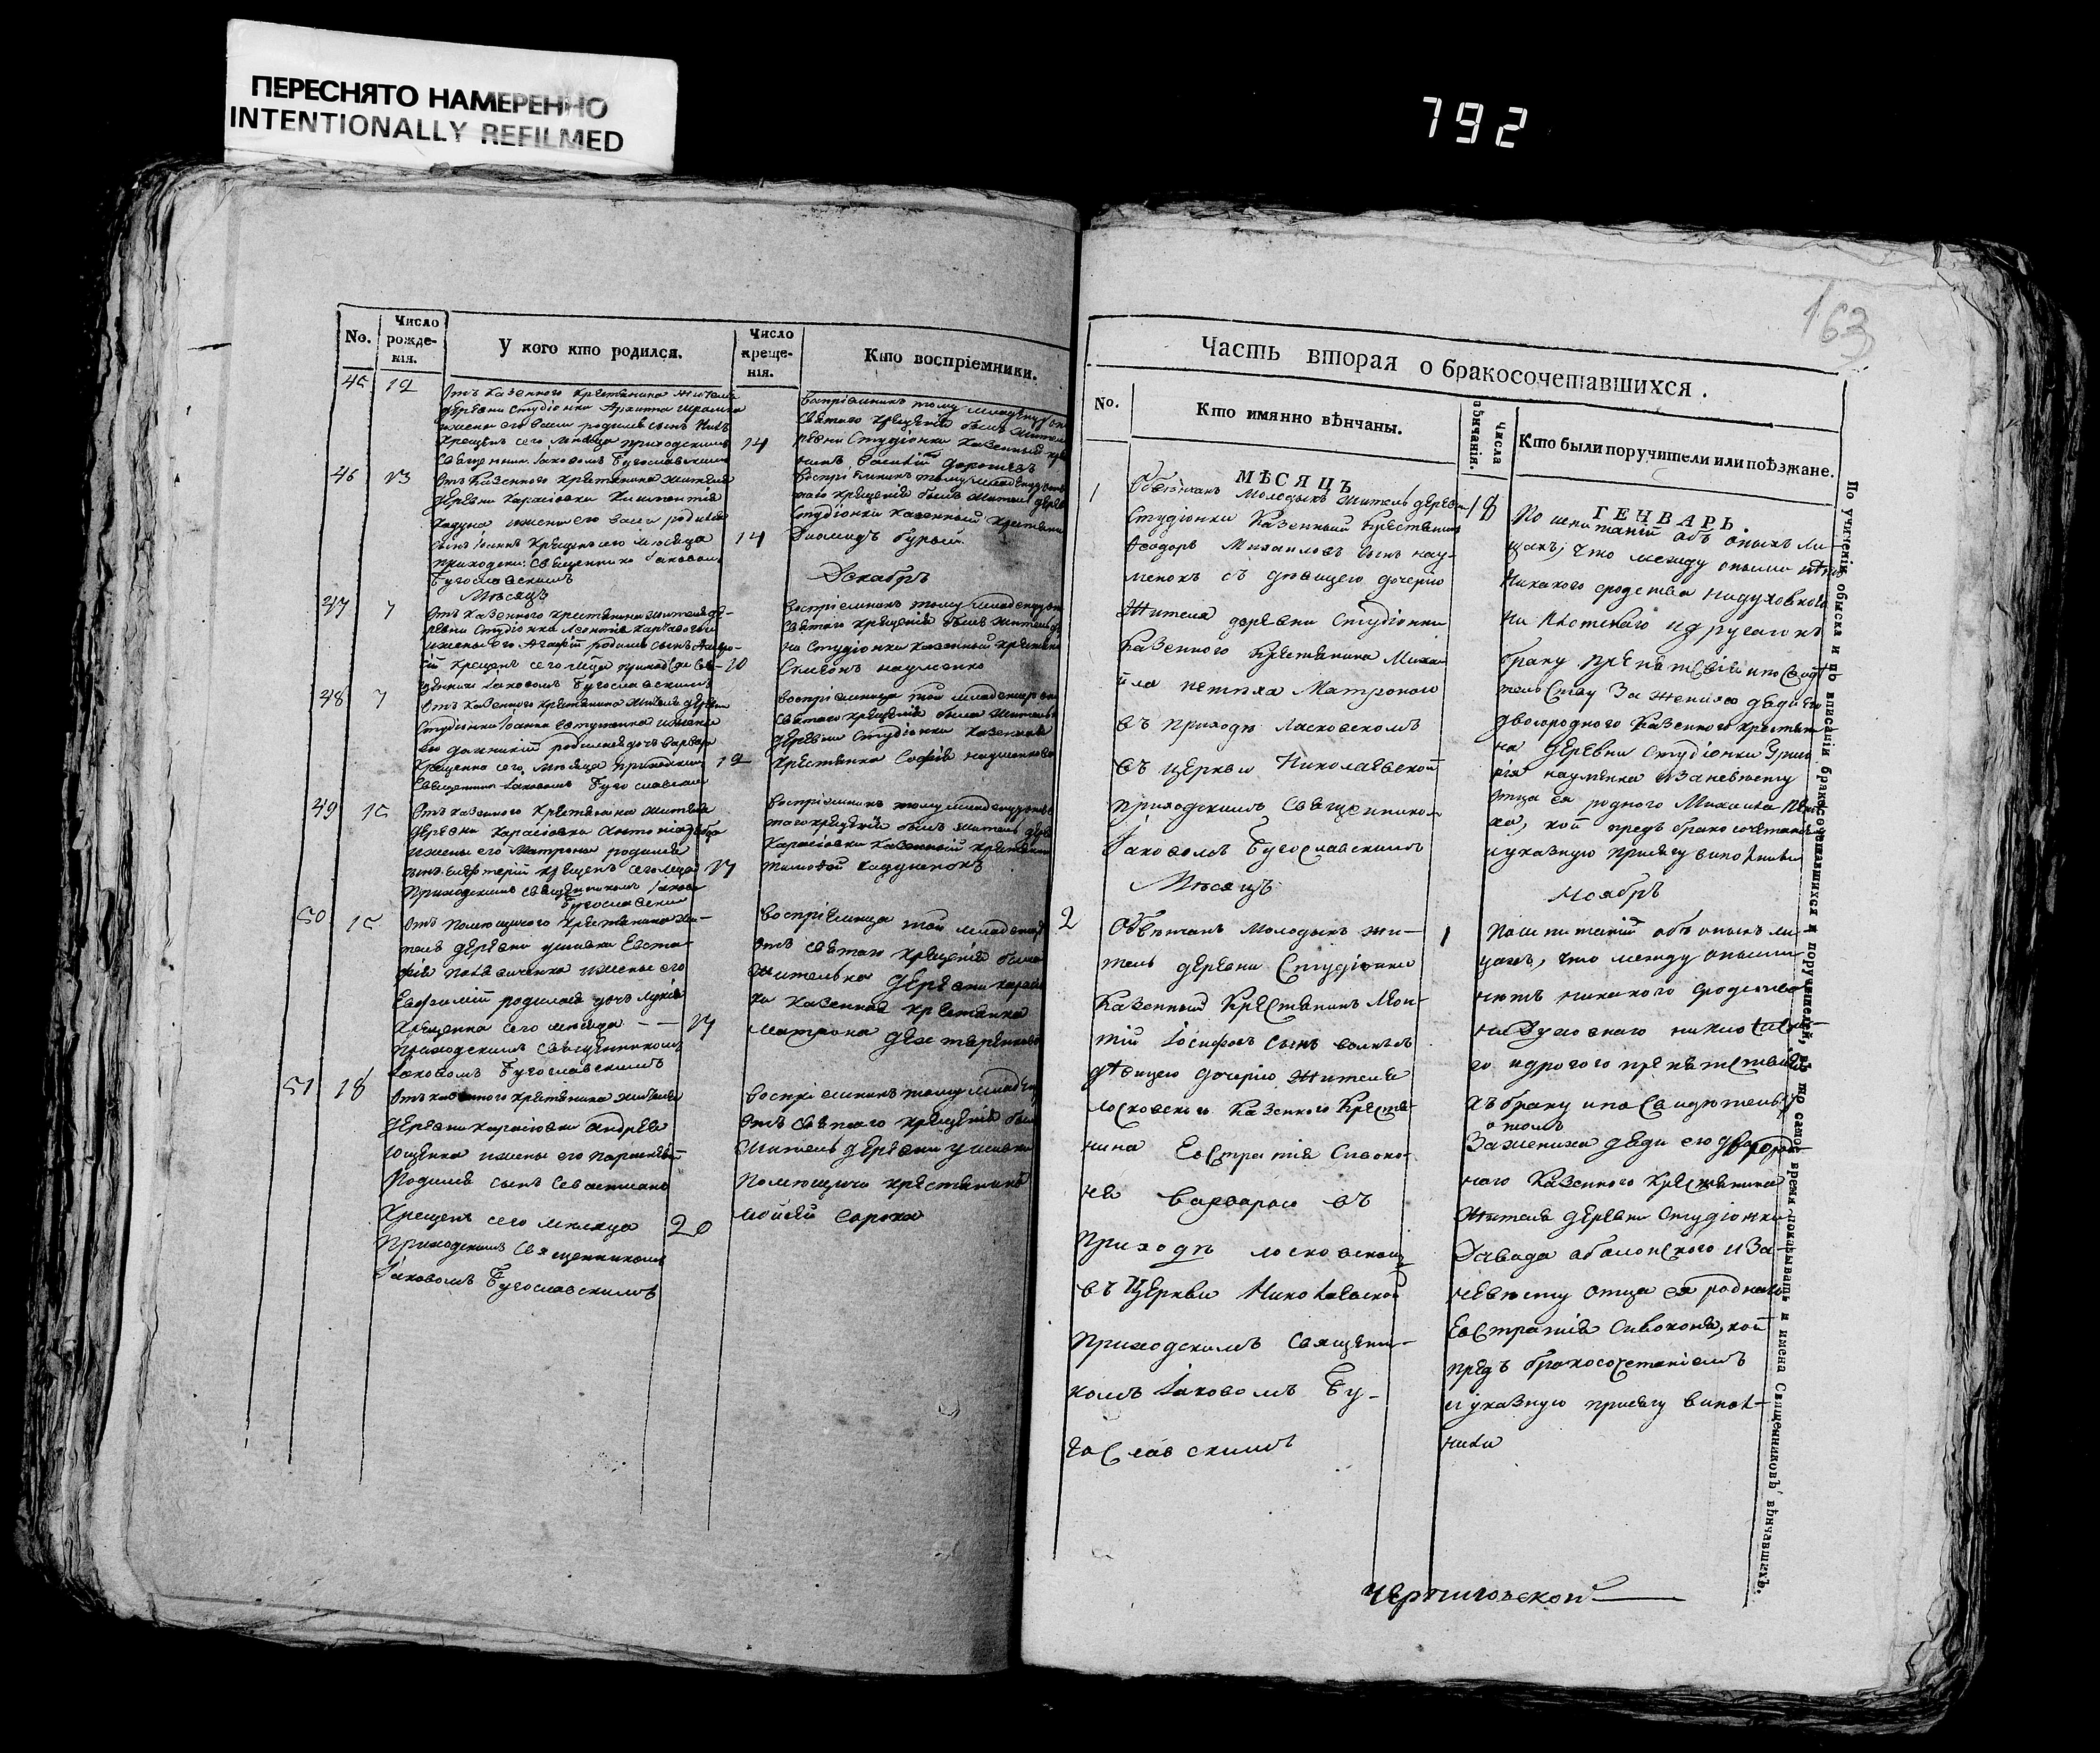 ПЕРЕСНЯТО НАМЕРЕННО
INTENTIONALLY REFILMED
792
163
No.
Число рожденія.
У кого кто родился.
Число крещенія.
Кто воспріемники.
45 12
Отъ казенного крестянина жителя
деревни Студіонки Архипа
жени его родился сынъ
крещенъ сего месяца приходскимъ 14
Священник. Іаковомъ Бугославскимъ
воспріемникъ тому младенцу от
Святаго крещенія былъ жител
ревни Студіонки казенный кре
46 13
Отъ казенного крестянина жителя
деревни Карасіовки Климентія
жени его родился
сынъ Іоаннъ крещенъ сего месяца 14
приходски. Священнико Іаковом
Бугославскимъ
воспріемникъ тому младенцу отъ
таго крещенія былъ житель дере
Студіонки казенный крестяни
Диомидъ Бурый
Месяцъ Декабръ
47 7
Отъ казенного крестянина жителя де-
ревни Студіонки Леонтія
жени его Агафіи родился сынъ
крещенъ сего м̃ца приход 10
Іаковомъ Бугославскимъ
воспріемникъ тому младенцу от
Святаго крещенія былъ житель де
ни Студіонки казенный крестяни
Симеонъ Науменко
48 7
Отъ казенного крестянина жителя деревни
Студіонки Іоанна Евтушенка и жени
его родилася дочь Варвара
крещенна сего месяца приходским 12
Священник. Іаковомъ Бугославским
воспріемница той младенице от
Святаго крещенія была жителька
деревни Студіонки казенная
крестянка Софія Науменкова
49 15
Отъ казенного крестянина жителя
деревни Карасіовки Антонія
и жены его Матроны родился
сынъ Елефтерій крещенъ сего м̃ца 17
приходскимъ священникомъ Іаково
Бугославским
воспріемникъ тому младенцу отъ
таго крещенія былъ житель дере
Карасіовки казенный крестянин
Тимофей Кадученокъ
50 15
Отъ помещичого крестянина жи-
теля деревни Ушивки Евста-
фія и жены его
Евфиміи родилася дочь
крещенна сего месяца — — 17
приходскимъ священникомъ
Іаковомъ Бугославскимъ
воспріемница той младениц
отъ святаго крещенія была
жителька деревни Карасіо
ки казенная крестянка
Матрона Дехтяренкова
51 18
Отъ казенного крестянина жителя
деревни Карасіовки Андрея
Ющенка и жены его Параскеві-
родился сынъ Севастианъ
крещенъ сего месяца 20
приходскимъ священникомъ
Іаковомъ Бугославскимъ
воспріемникъ тому младенц
отъ святаго крещенія былъ
житель деревни Ушивки
помещичій крестянинъ
Мойсей Сорока
Часть вторая о бракосочетавшихся.
No.
Кто имянно вѣнчаны.
Числа вѣнчанія.
Кто были поручители или поѣзжане.
МѢСЯЦЪ ГЕНВАРЬ.
1
Обвѣнчанъ молодыхъ житель деревн 18
Студіонки казенный крестянинъ
Ѳеодоръ Михаиловъ сынъ нау-
менокъ съ дѣвицею дочерію
жителя деревни Студіонки
казенного крестянина Миха-
ила Петяха Матроною
въ приходѣ Ласковскомъ
въ церкви Николаевской
приходскимъ Священником
Іаковомъ Бугославскимъ
По испитаніи объ оныхъ ли-
цахъ, что между оными нѣтъ
никакого сродства ни духовного
ни плотскаго и другаго къ
браку препятствія и по свидѣ
телству за жениха дяди его
двоюродного казенного крестяни
на деревни Студіонки
Науменка и за невѣсту
отца ея родного Михаила Петя
ха, кой предъ бракосочетаніем
и указную присягу виполнили
Месяцъ Ноябръ
2
Обвѣнчанъ молодыхъ жи- 1
тель деревни Студіонки
казенный крестянинъ Леон-
тій Іосифовъ сынъ
дѣвицею дочерію жителя
Ласковского казенного крестя-
нина Евстратія Сивоко-
ня Варварою въ
приходѣ Ласковском
въ церкви Николаевской
приходскимъ священни-
комъ Іаковомъ Бу-
гославскимъ
По испитаніи объ оныхъ ли-
цахъ, что между оными
нѣтъ никакого сродства
ни духовнаго ни плотска-
го и другого препятствія
къ браку и по свидѣтельст
о томъ
за жениха дяди его двоюрод
наго казенного крестянина
жителя деревни Студіонки
Давида Оболонского и за
невѣсту отца ея роднаго
Евстратія Сивоконя, кой
предъ бракосочетаніемъ
и указную присягу випол-
нили
По учиненіи обыска и по вписаніи бракосочетавшихся и поручителей, въ то самое время показывать и имена Священниковъ вѣнчавшихъ.
Черниговской